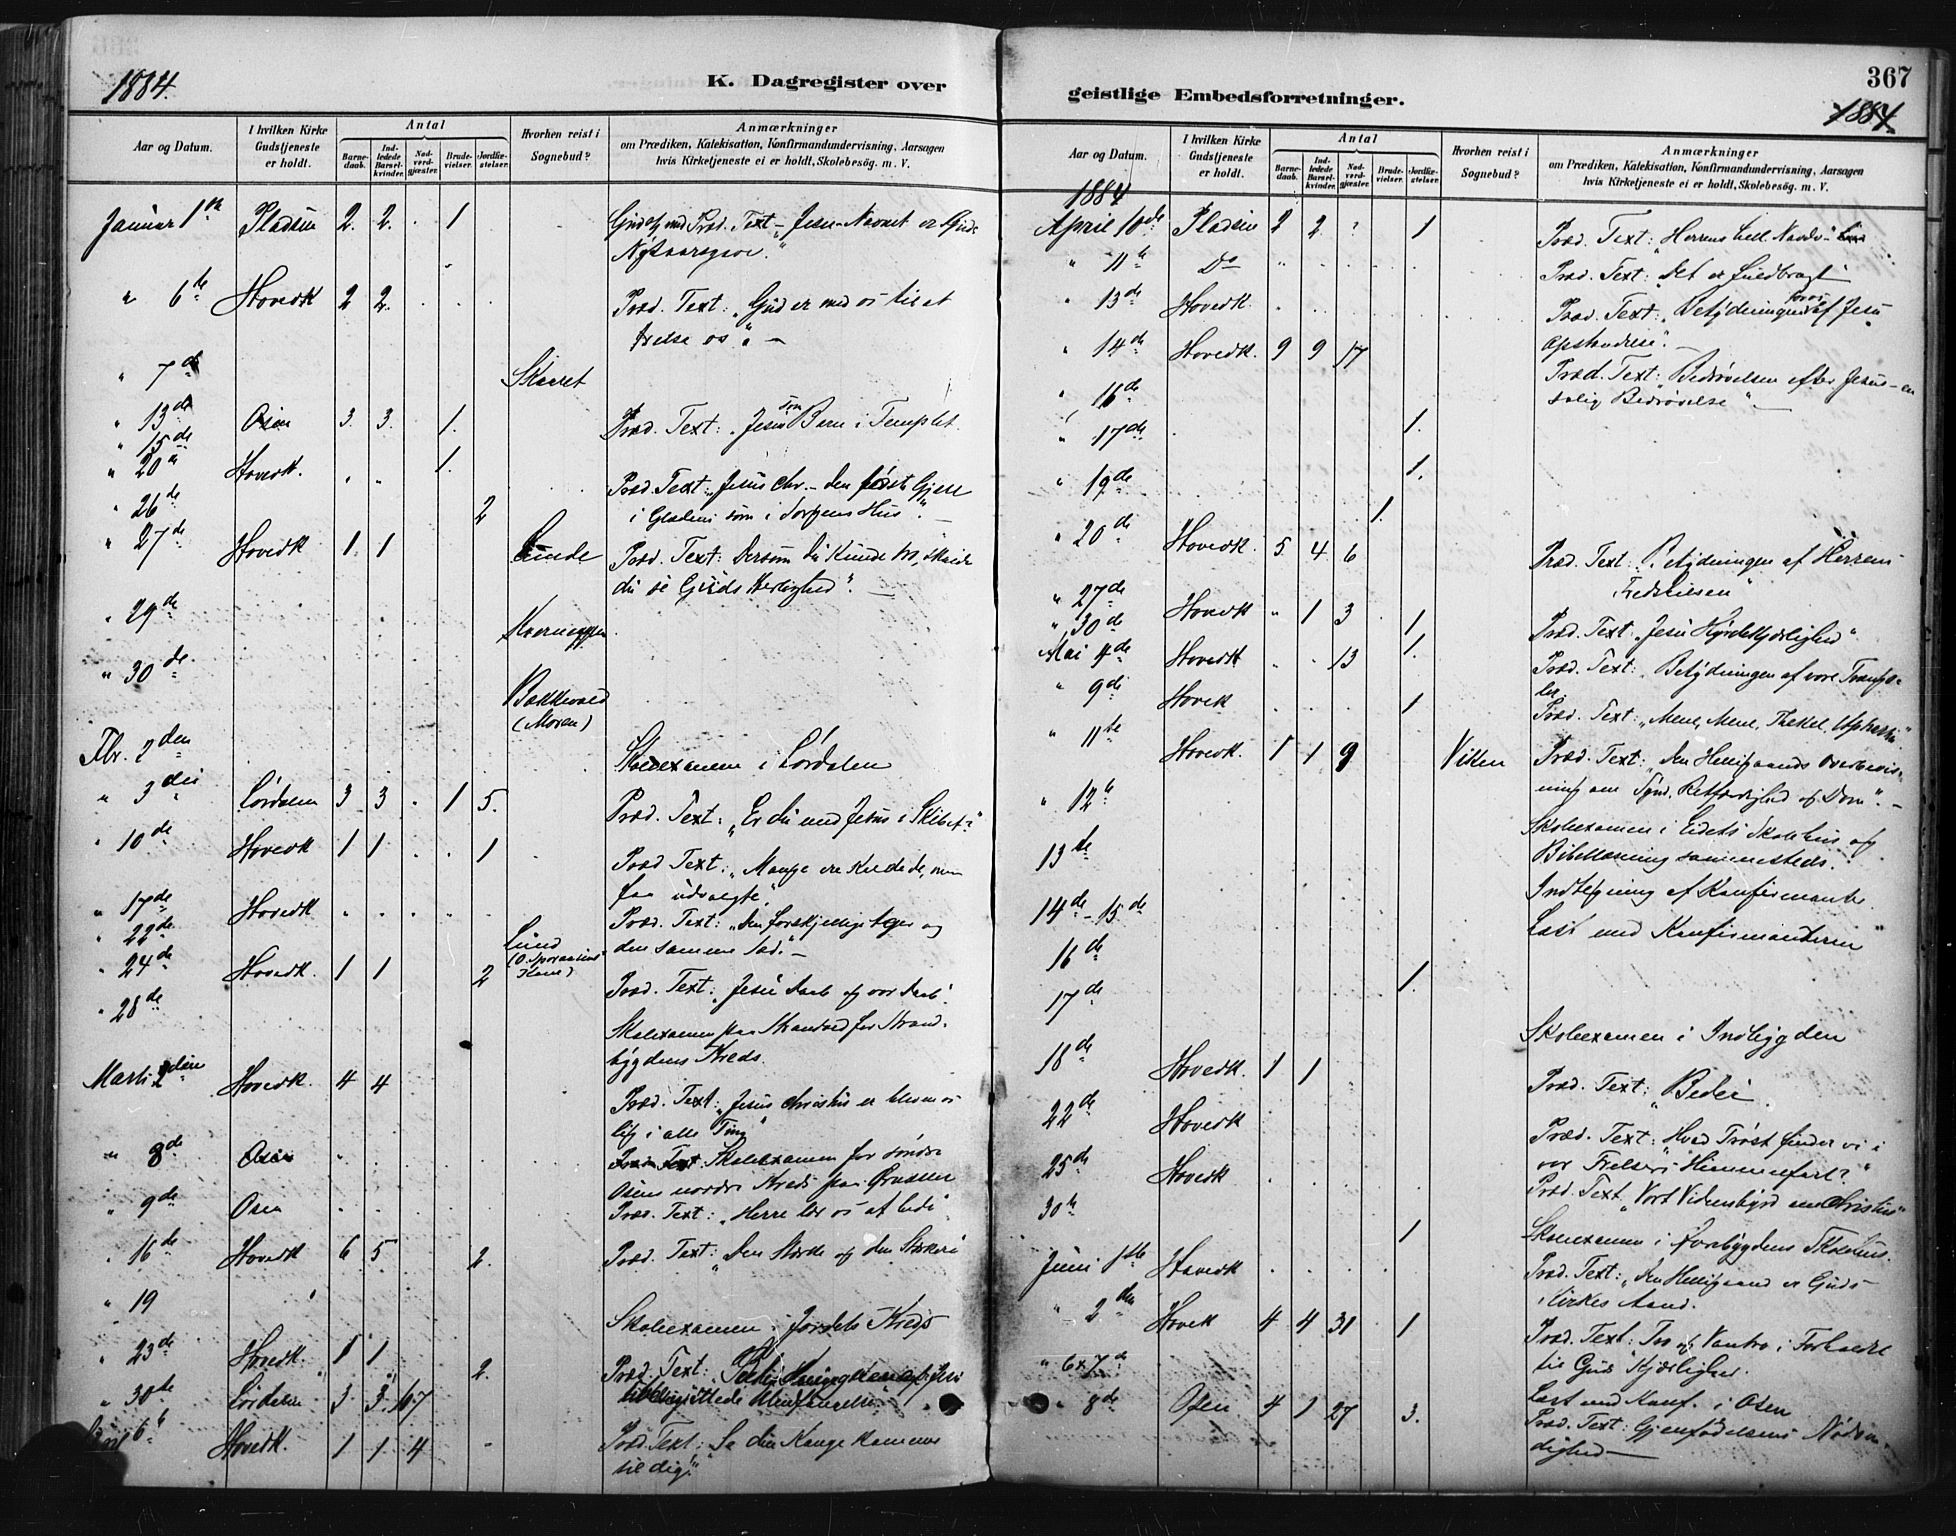 1884.
K. Dagregister over
Aar og Datum.
I hvilken Kirke Gudstjeneste er holdt.
Antal
Barnedaab.
Indledede Barselkvinder.
Nadverdgjæster.
Brudevielser.
Jordfæstelser.
Hvorhen reist i Sognebud?
Anmærkninger
om Prædiken, Katekisation, Konfirmandundervisning, Aarsagen
hvis Kirketjeneste ei er holdt, Skolebesøg. m. V.
Januar 1ste Pladsen 2. 2. . 1 Præd. Text - Jesu-Navnet er
Nytaarsgave."
" 6te Hovedk 2 2. Præd. Text: "Gud er med os til at
frelse os". -
" 7de Skaaret
" 13de Osen 3. 3. 1. Præd. Text: "Jesus som Barn i Templet.
" 15de
" 20de Hovedk. 1. Præd. Text: "Jesus Chr. - den Gjest
i Glædens som i Sorgens Hus".
" 26de 2
" 27de Hovedk 1. 1 Lunde Præd. Text: Dersom du Kunde tro, skulde
du se Guds Herlighed". -
" 29de
" 30de Bakkevold
(Moren)
Fbr. 2den Skoleexamen i Lørdalen
" 3die Lørdalen 3 3 . 1 5. Præd. Text: "Er du med Jesus i Skibet?"
" 10de Hovedk 1 1 . . 1 Præd. Text: "Mange ere Kaldede, men
faa udvalgte."
" 17de Hovedk Præd. Text: "Den forskjellige Ager og
den samme Sæd." -
" 22de Lund
" 24de Hovedk. 1 1 2 Præd. Text: "Jesu Daab og vor Daab".
" 28de Skoleexamen paa Strandved for Strand-
bygdens Kreds.
Marts 2den Hovedk. 4 4 Præd. Text: "Jesus Christus er bleven os
lig i alle Ting"
" 8de Osen Skoleexamen for søndre
Osens nordre Kreds paa
" 9de Osen Præd. Text: "Herre lær os at bede"
" 16de Hovedk 6 5 2. Præd. Text: "Den Stærke og den Stærkere
" 19 Skoleexamen i Jordets Kreds
" 23de Hovedk. 1 1 2. Præd. Text:
" 30te Lørdalen 3. 3. 67
April 6te Hovedk. 1 1 4 Præd. Text: "Se din Konge kommer
til dig".
geistlige Embedsforretninger.
367
1884.
Aar og Datum.
I hvilken Kirke Gudstjeneste er holdt.
Antal
Barnedaab.
Indledede Barselkvinder.
Nadverdgjæster.
Brudevielser.
Jordfæstelser.
Hvorhen reist i Sognebud?
Anmærkninger
om Prædiken, Katekisation, Konfirmandundervisning, Aarsagen
hvis Kirketjeneste ei er holdt, Skolebesøg. m. V.
1884
April 10de Pladsen 2 2 1 Præd. Text: "Herrens hell. Nadv."
" 11te Do Præd. Text: "Det er fuldbragt"
" 13de Hovedk. Præd. Text: "Betydningen for os af Jesu
Opstandelse". -
" 14de Hovedk. 9 9 17 Præd. Text: "Bedrøvelsen efter Jesus - en
salig Bedrøvelse" -
" 16de
" 17de 1.
" 19de 1.
1.
" 20de Hovedk. 5 4 6 Præd. Text: "Betydningen af Herrens
Fredshilsen"
" 27de Hovedk " 1 3 1 Præd. Text "Jesu Hyrdekjærlighed"
" 30de 1.
Mai 4de Hovedk . . 13 Præd. Text: "Betydningen af vore
" 9de Hovedk 1 Præd. Text: "Mene, Mene, Thekel, Upharsin"
" 11te Hovedk. 1 1 9 Præd. Text: "Den Helligaands Overbevis-
ning om Synd, Retfærdighed og Dom". -
" 12te Skoleexamen i Eidets Skolehus og
Bibellæsning sammesteds.
13de Indtegning af Konfirmanter
14de - 15de Læst med Konfirmanterne
16de 1
17de Skoleexamen i Indbygden
18de Hovedk. 1 1 Præd. Text: "Beder"
22de Hovedk Præd. Text: "Hvad Trøst finder vi i
vor Frelsers Himmelfart?"
25de Hovedk Præd. Text "Vort Vidnesbyrd om Christus"
30te 1 Skoleexamen i Øvrebygdens Skolehus.
Juni 1ste Hovedk Præd. Text: "Den Helligaand er Guds
Kirkes Aand.
" 2den Hovedk 4 4 31 1 Præd. Text: Tro og Vantro i Forhold
til Guds Kjærlighed.
" 6 & 7de Læst med Konf. i Osen
" 8de Osen 4 1 27 3. Præd. Text: Gjenfødelsens Nødven-
dighed -